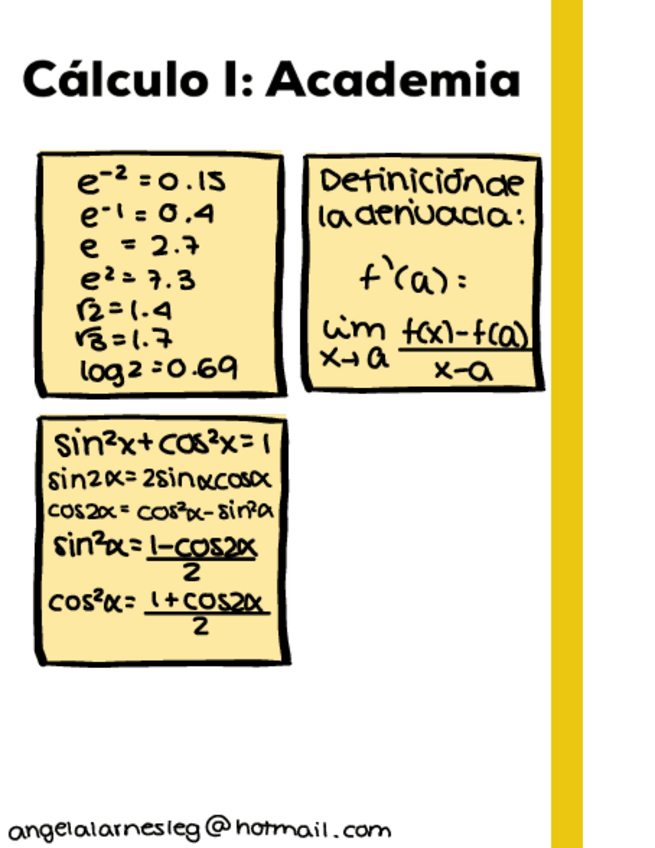 Cálculo I: Academia
e⁻² = 0.15
e⁻¹ = 0.4
e = 2.7
e² = 7.3
√2 = 1.4
√3 = 1.7
log 2 = 0.69
Definición de
la derivada:
f'(a) =
lim f(x)-f(a)
x→a x-a
sin²x + cos²x = 1
sin2α = 2sinαcosα
cos2α = cos²α - sin²α
sin²α = 1-cos2α
2
cos²α = 1+cos2α
2
angelalarnesleg@hotmail.com